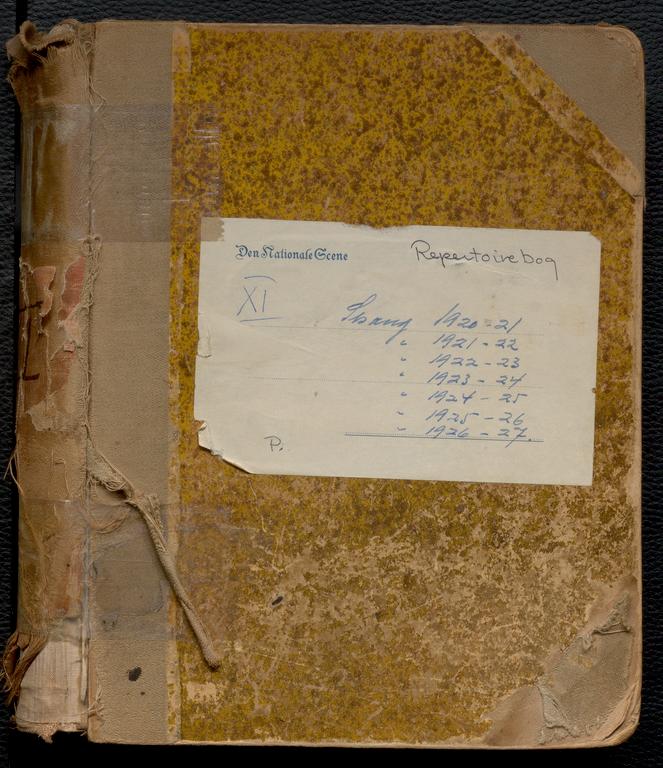 Den Nationale Scene
Repertoirebog
XI
Sæsong 1920-21
" 1921-22
" 1922-23
" 1923-24
" 1924-25
" 1925-26
" 1926-27.
P.